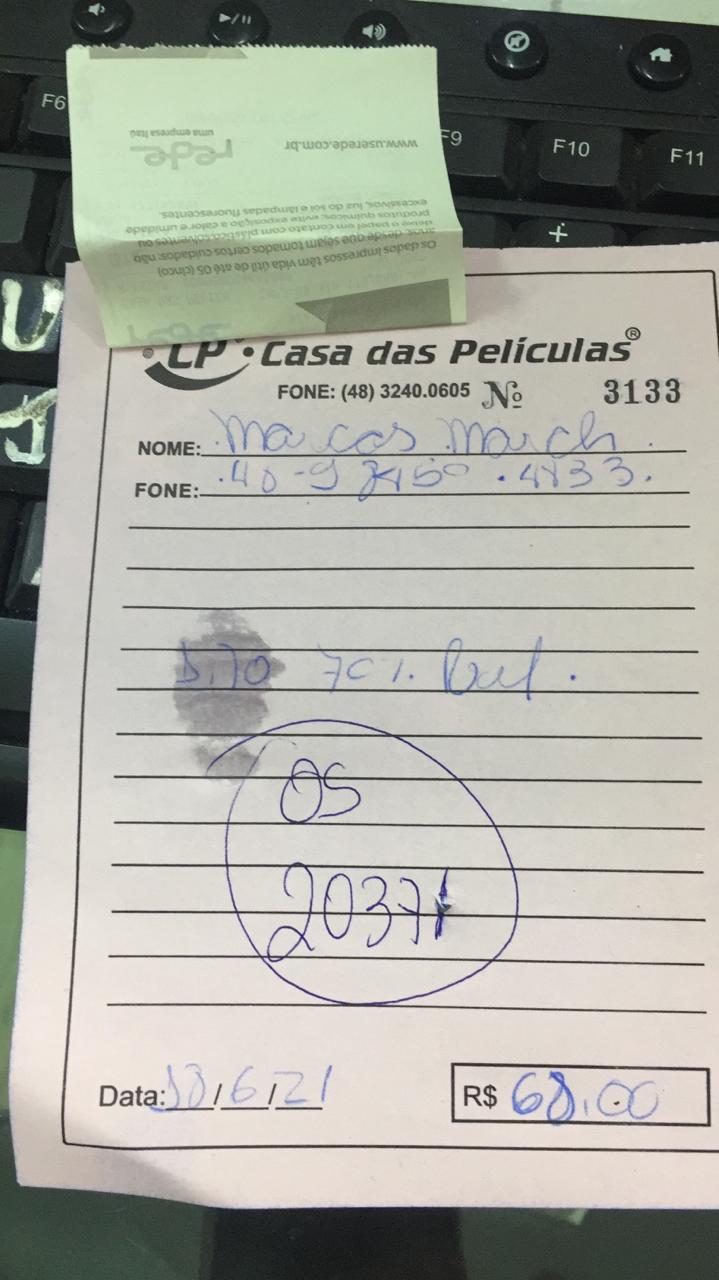 F6
F9
F10
F11
+
www.userede.com.br
rede
uma empresa Itaú
Os dados impressos têm vida útil de até 05 (cinco)
anos, desde que sejam tomados certos cuidados: não
deixe o papel em contato com plásticos, solventes ou
produtos químicos; evite exposição a calor e umidade
excessivos, luz do sol e lâmpadas fluorescentes.
CP Casa das Películas®
FONE: (48) 3240.0605 Nº 3133
NOME: Marcos March
FONE:
70%
OS
20371
Data: /6/21
R$ 68,00